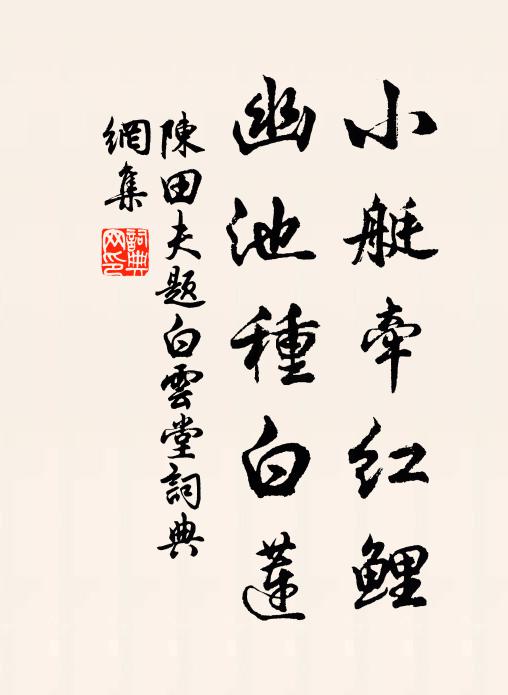 小艇牽紅鯉
幽池種白蓮
陳田夫題白雲堂詞典
網集
詞典
网印